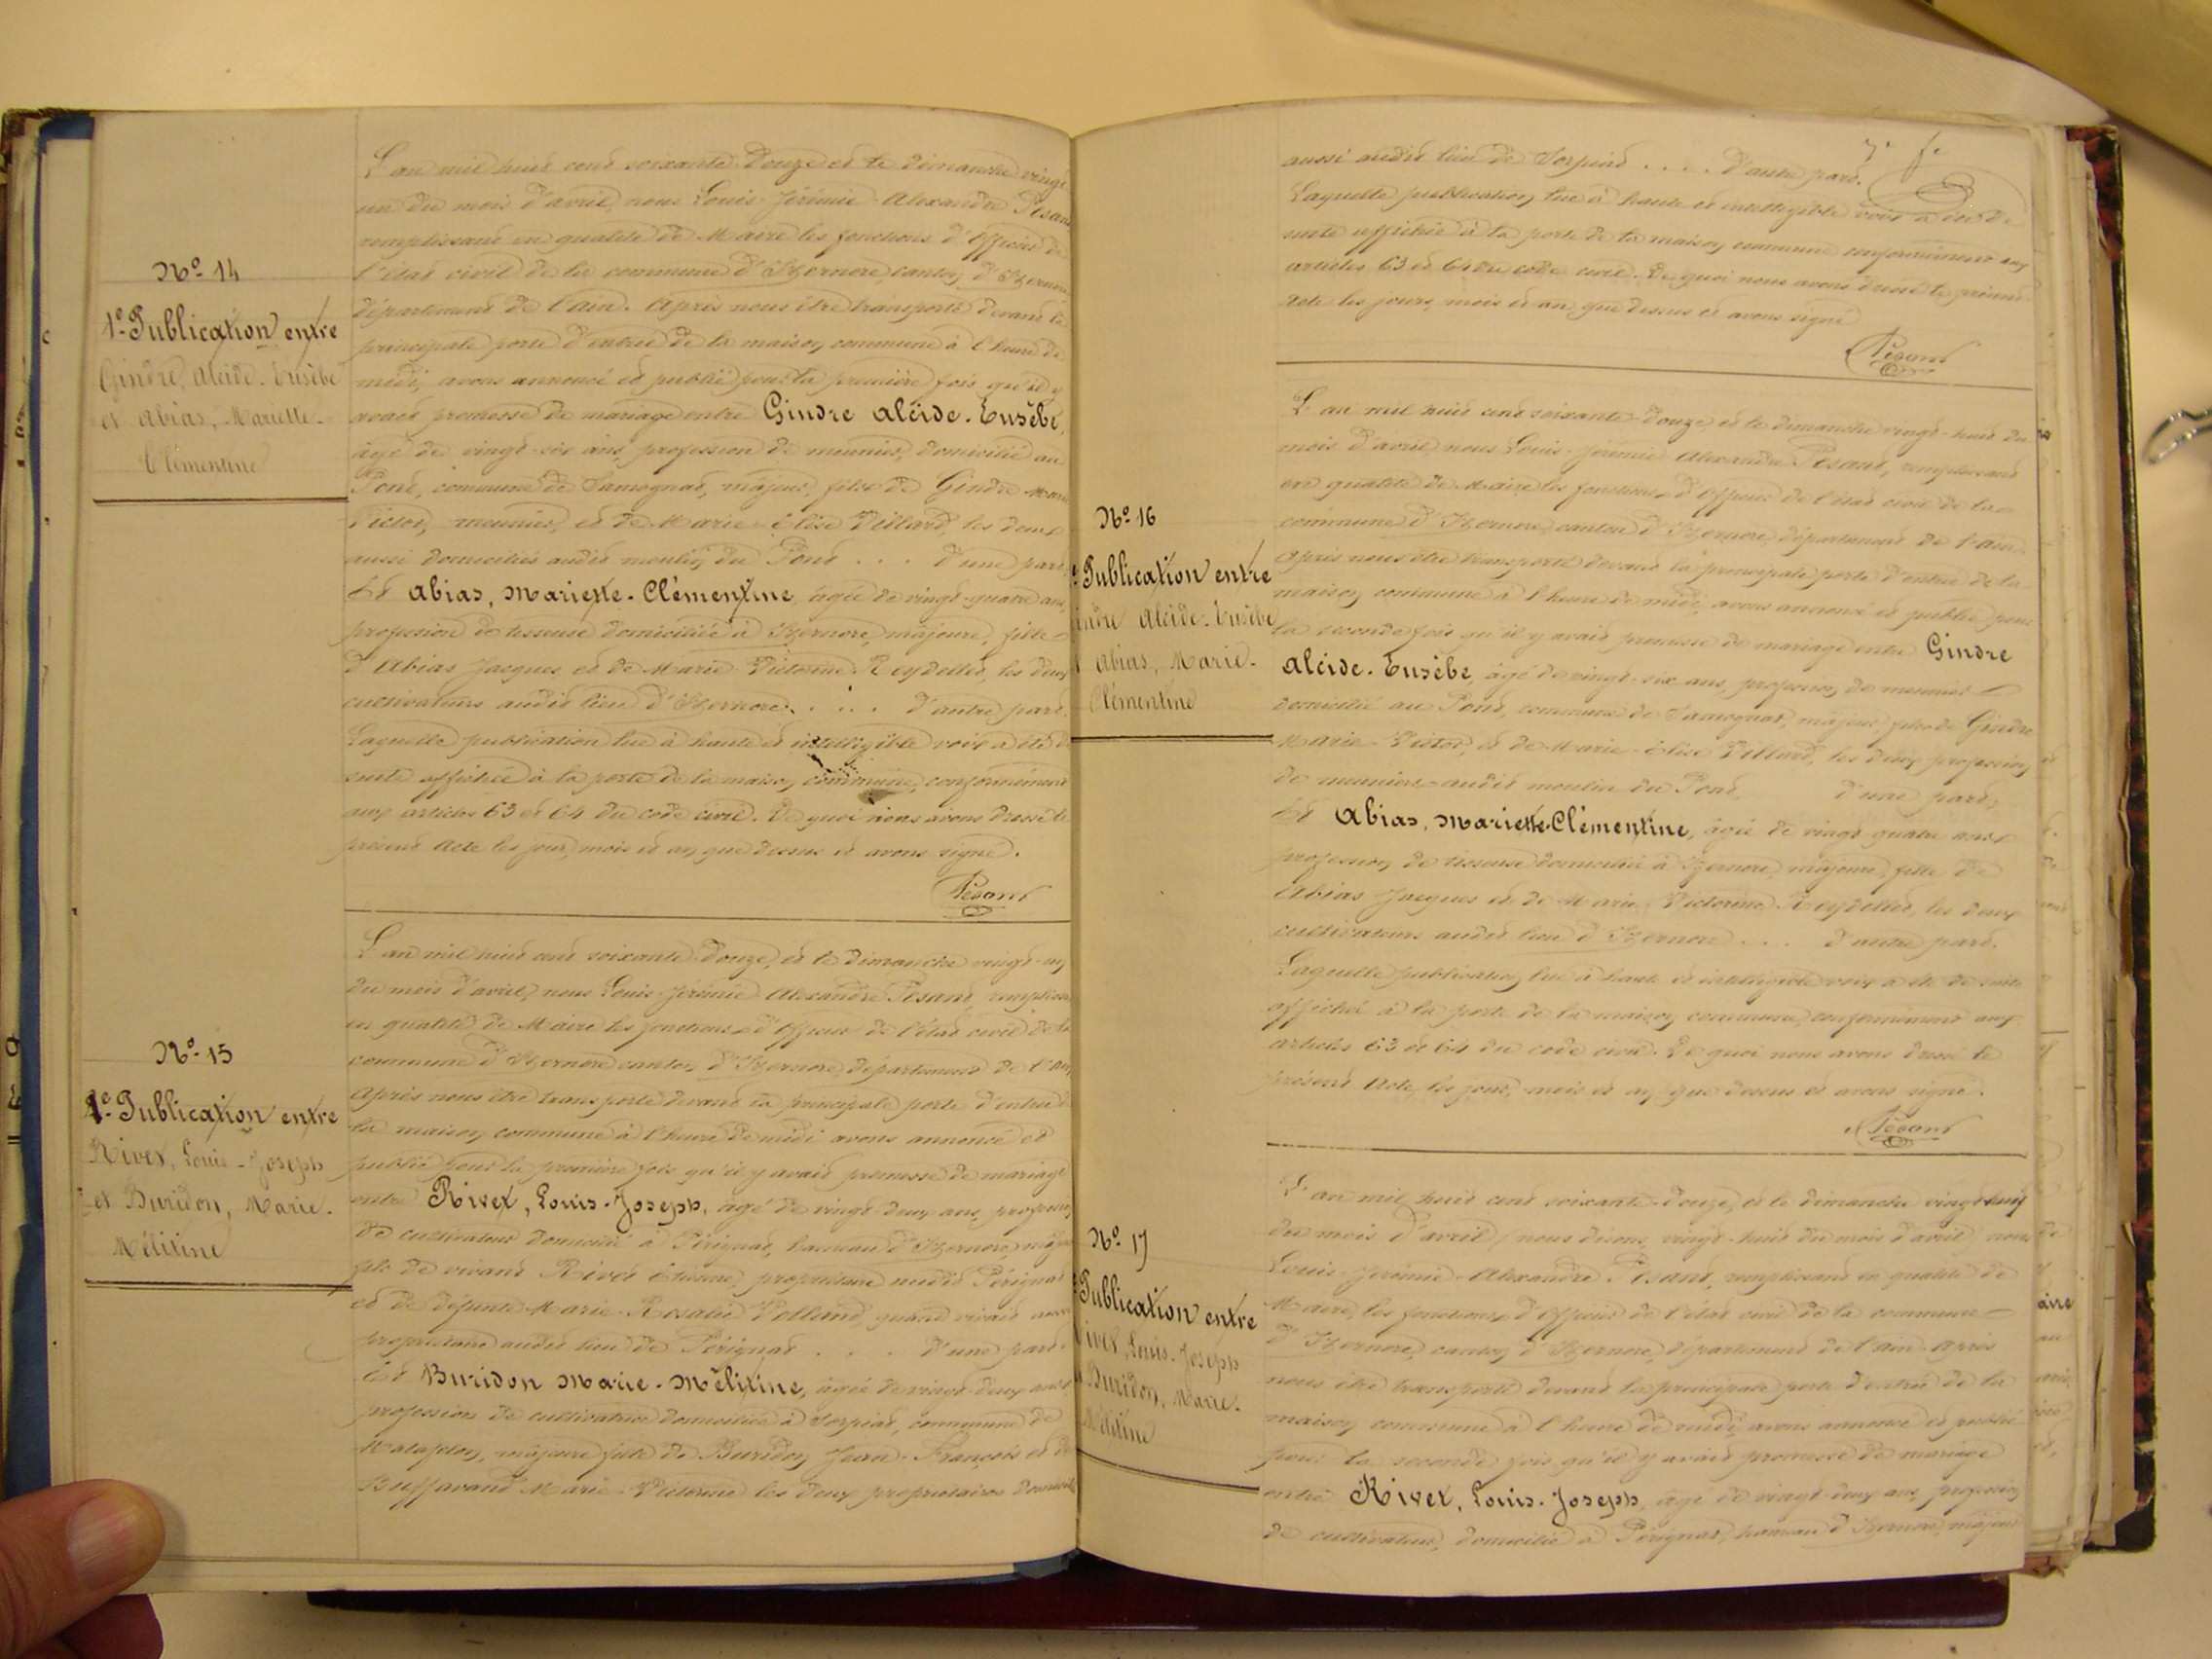 Nº 14
1e Publication entre
Gindre, Alcide-Eusèbe
et Abias, Mariette-
Clémentine
L'an mil huit cent soixante-douze et le dimanche vingt-
un du mois d'avril, nous Louis-Jérémie-Alexandre Pesant
remplissant en qualité de Maire les fonctions d'officier de
l'état civil de la commune d'Izernore, canton d'Izernore
département de l'ain. Après nous être transporté devant la
principale porte d'entrée de la maison commune à l'heure de
midi, avons annoncé et publié pour la première fois qu'il y
avait promesse de mariage entre Gindre Alcide-Eusèbe,
âgé de vingt-six ans, profession de meunier, domicilié au
Pont, commune de Samognat, majeur, fils de Gindre Marie
Victor, meunier, et de Marie-Elise Villard, les deux
aussi domiciliés audit moulin du Pont . . . d'une part
Et Abias, Mariette-Clémentine, âgée de vingt-quatre ans,
profession de tisseuse domiciliée à Izernore, majeure, fille
d'Abias Jacques et de Marie Victorine Reydellet, les deux
cultivateurs audit lieu d'Izernore . . . . d'autre part.
Laquelle publication lue à haute et intelligible voix a été de
suite affichée à la porte de la maison commune, conformément
aux articles 63 et 64 du code civil. De quoi nous avons dressé le
présent Acte les jour, mois et an que dessus et avons signé.
Pesant
Nº 15
1e Publication entre
Rivet, Louis-Joseph
et Buridon, Marie-
Mélitine
L'an mil huit cent soixante-douze, et le dimanche vingt-un
du mois d'avril, nous Louis-Jérémie Alexandre Pesant, remplissant
en qualité de Maire les fonctions d'officier de l'état civil de la
commune d'Izernore canton d'Izernore, département de l'ain,
Après nous être transporté devant la principale porte d'entrée de
la maison commune à l'heure de midi avons annoncé et
publié pour la première fois qu'il y avait promesse de mariage
entre Rivet, Louis-Joseph, âgé de vingt-deux ans, profession
de cultivateur domicilié à Pérignat, hameau d'Izernore, majeur
fils de vivant Rivet Etienne, propriétaire audit Pérignat
et de défunte Marie-Rosalie Volland, quand vivait aussi
propriétaire audit lieu de Pérignat . . . d'une part.
Et Buridon Marie-Mélitine, âgée de vingt-deux ans
profession de cultivatrice domiciliée à Sorpiat, commune de
Matafelon, majeure fille de Buridon Jean-François et de
Buffavand Marie-Victorine les deux propriétaires domiciliés
7e f.
aussi audit lieu de Sorpiat . . . . D'autre part.
Laquelle publication lue à haute et intelligible voix a été de
suite affichée à la porte de la maison commune conformément aux
articles 63 et 64 du code civil. De quoi nous avons dressé le présent
Acte les jours, mois et an que dessus et avons signé
Pesant
Nº 16
Publication entre
indre Alcide-Eusèbe
Abias, Marie-
Clémentine
L'an mil huit cent soixante-douze, et le dimanche vingt-huit du
mois d'avril, nous Louis-Jérémie Alexandre Pesant, remplissant
en qualité de Maire les fonctions d'officier de l'état civil de la
commune d'Izernore, canton d'Izernore, département de l'ain.
Après nous être transporté devant la principale porte d'entrée de la
maison commune à l'heure de midi, avons annoncé et publié pour
la seconde fois qu'il y avait promesse de mariage entre Gindre
Alcide-Eusèbe, âgé de vingt-six ans, profession de meunier
domicilié au Pont, commune de Samognat, majeur, fils de Gindre
Marie-Victor, et de Marie-Elise Villard, les deux profession
de meuniers audit moulin du Pont d'une part,
Et Abias, Mariette-Clémentine, âgée de vingt-quatre ans
profession de tisseuse domiciliée à Izernore, majeure, fille de
Abias Jacques et de Marie Victorine Reydellet, les deux
cultivateurs audit lieu d'Izernore . . . d'autre part.
Laquelle publication lue à haute et intelligible voix a été de suite
affichée à la porte de la maison commune, conformément aux
articles 63 et 64 du code civil. De quoi nous avons dressé le
présent Acte, les jour, mois et an que dessus et avons signé.
Pesant
Nº 17
Publication entre
ivet, Louis-Joseph
Buridon, Marie-
Mélitine
L'an mil huit cent soixante-douze, et le dimanche vingt-huit
du mois d'avril, nous disons, vingt-huit du mois d'avril, nous
Louis-Jérémie-Alexandre Pesant, remplissant en qualité de
Maire, les fonctions d'officier de l'état civil de la commune
d'Izernore, canton d'Izernore, département de l'ain. Après
nous être transporté devant la principale porte d'entrée de la
maison commune à l'heure de midi, avons annoncé et publié
pour la seconde fois qu'il y avait promesse de mariage
entre Rivet, Louis-Joseph, âgé de vingt-deux ans, profession
de cultivateur, domicilié à Pérignat, hameau d'Izernore, majeur